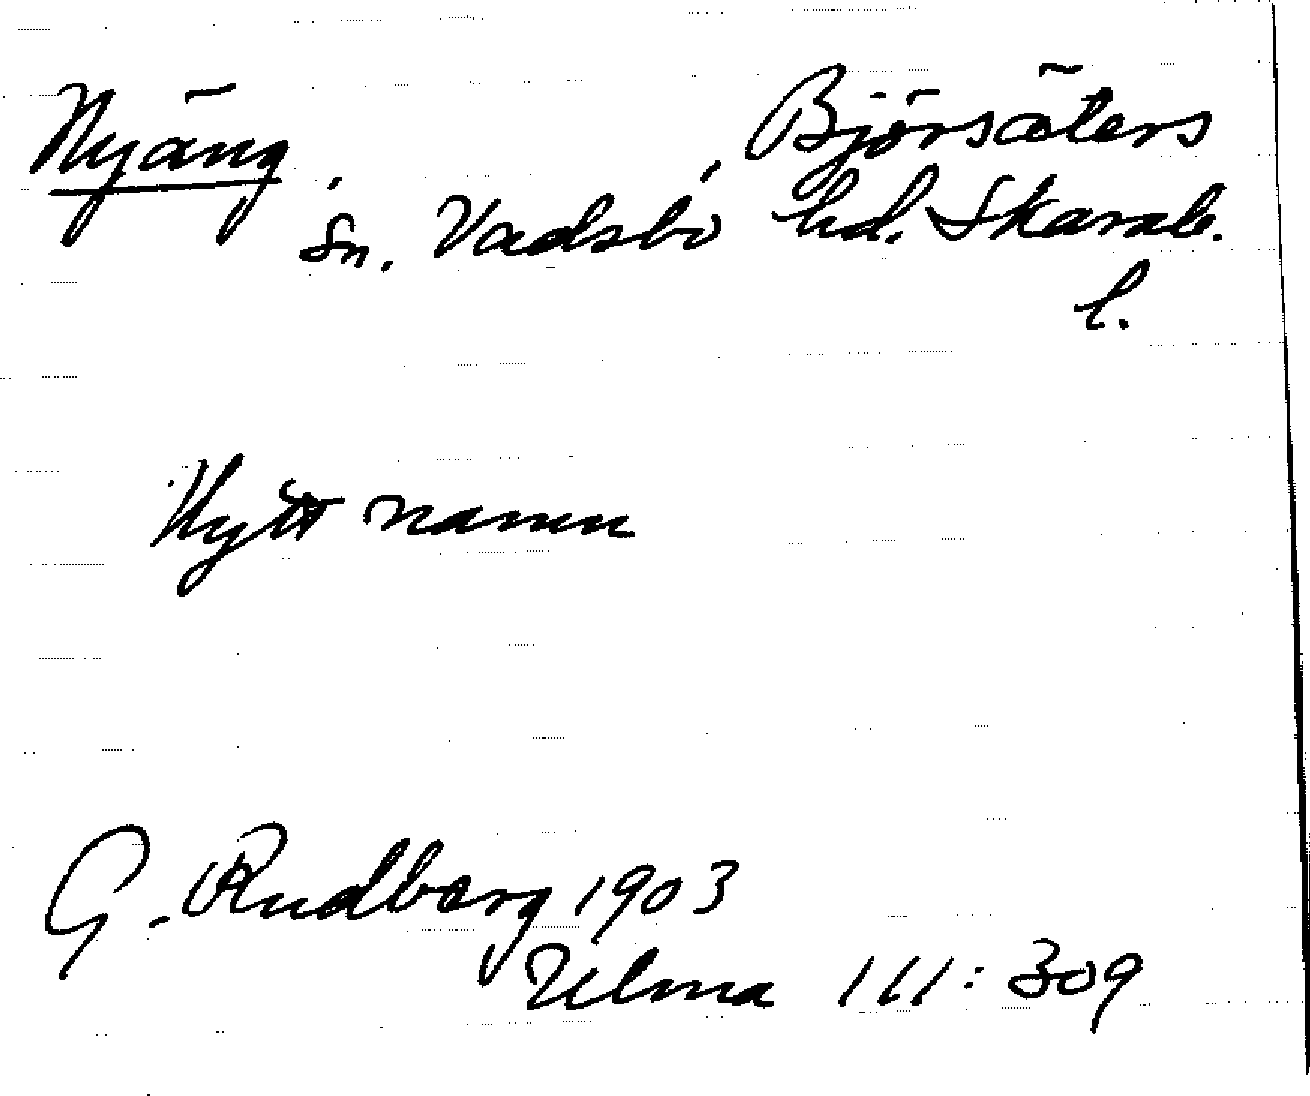 Nyäng, Björsäters
sn. Vadsbo hd. Skarab.
l.
Nytt namn
G. Rudberg 1903
Ulma 111:309